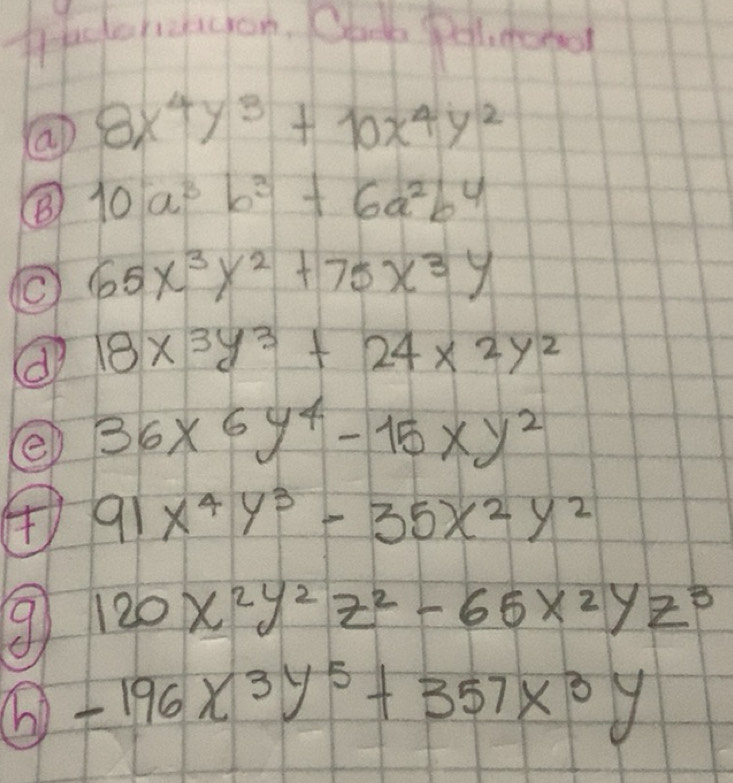 Factorización. Cada Polinomio
a) 8x⁴y³ + 10x⁴y²
B) 10a³b³ + 6a²b⁴
c) 65x³y² + 75x³y
d) 18x³y³ + 24x²y²
e) 36x⁶y⁴ - 15xy²
f) 91x⁴y³ - 35x²y²
g) 120x²y²z² - 65x²yz³
h) -196x³y⁵ + 357x³y